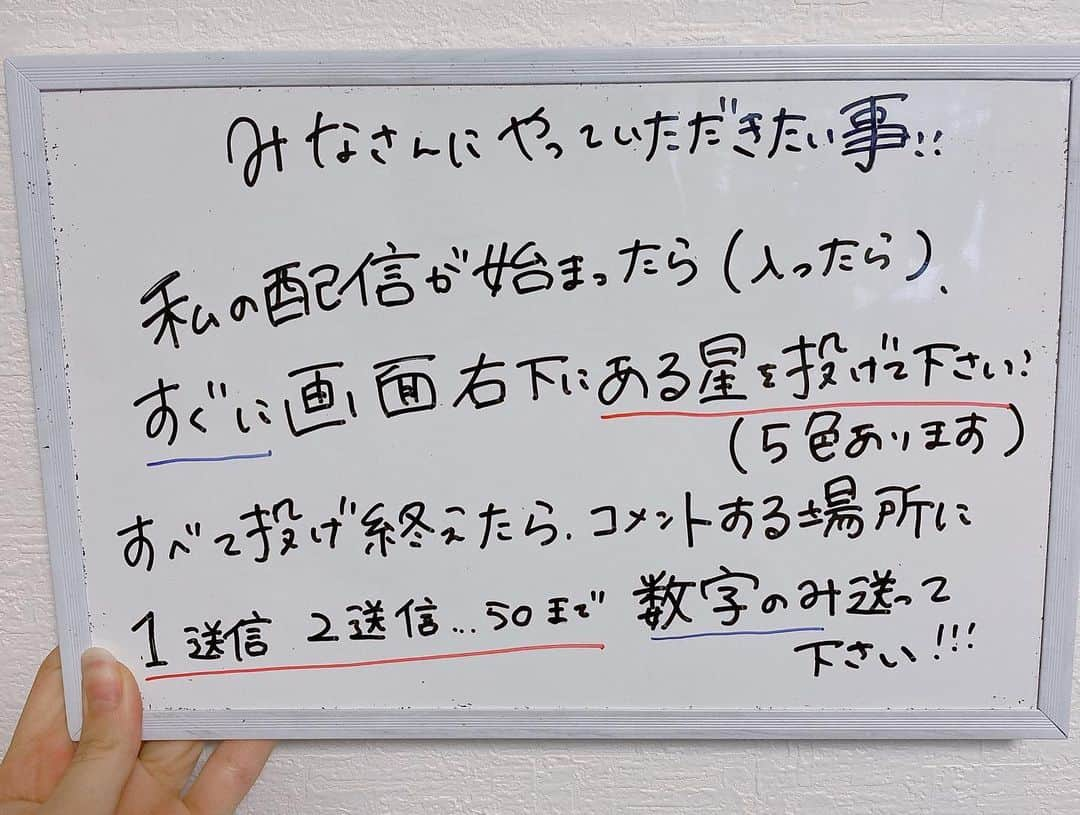 みなさんにやっていただきたい事!!
私の配信が始まったら(入ったら)、
すぐに画面右下にある星を投げて下さい!
(5色あります)
すべて投げ終えたら、コメントする場所に
1送信 2送信...50まで 数字のみ送って
下さい!!!